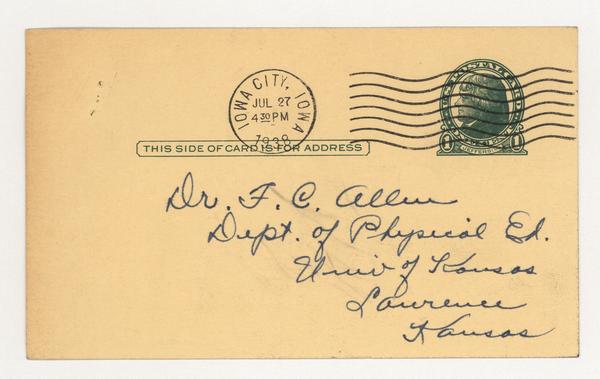 IOWA CITY, IOWA
JUL 27
4 30 PM
1938
THIS SIDE OF CARD IS FOR ADDRESS
JEFFERSON
Dr. F. C. Allen
Dept. of Physical Ed.
Univ of Kansas
Lawrence
Kansas